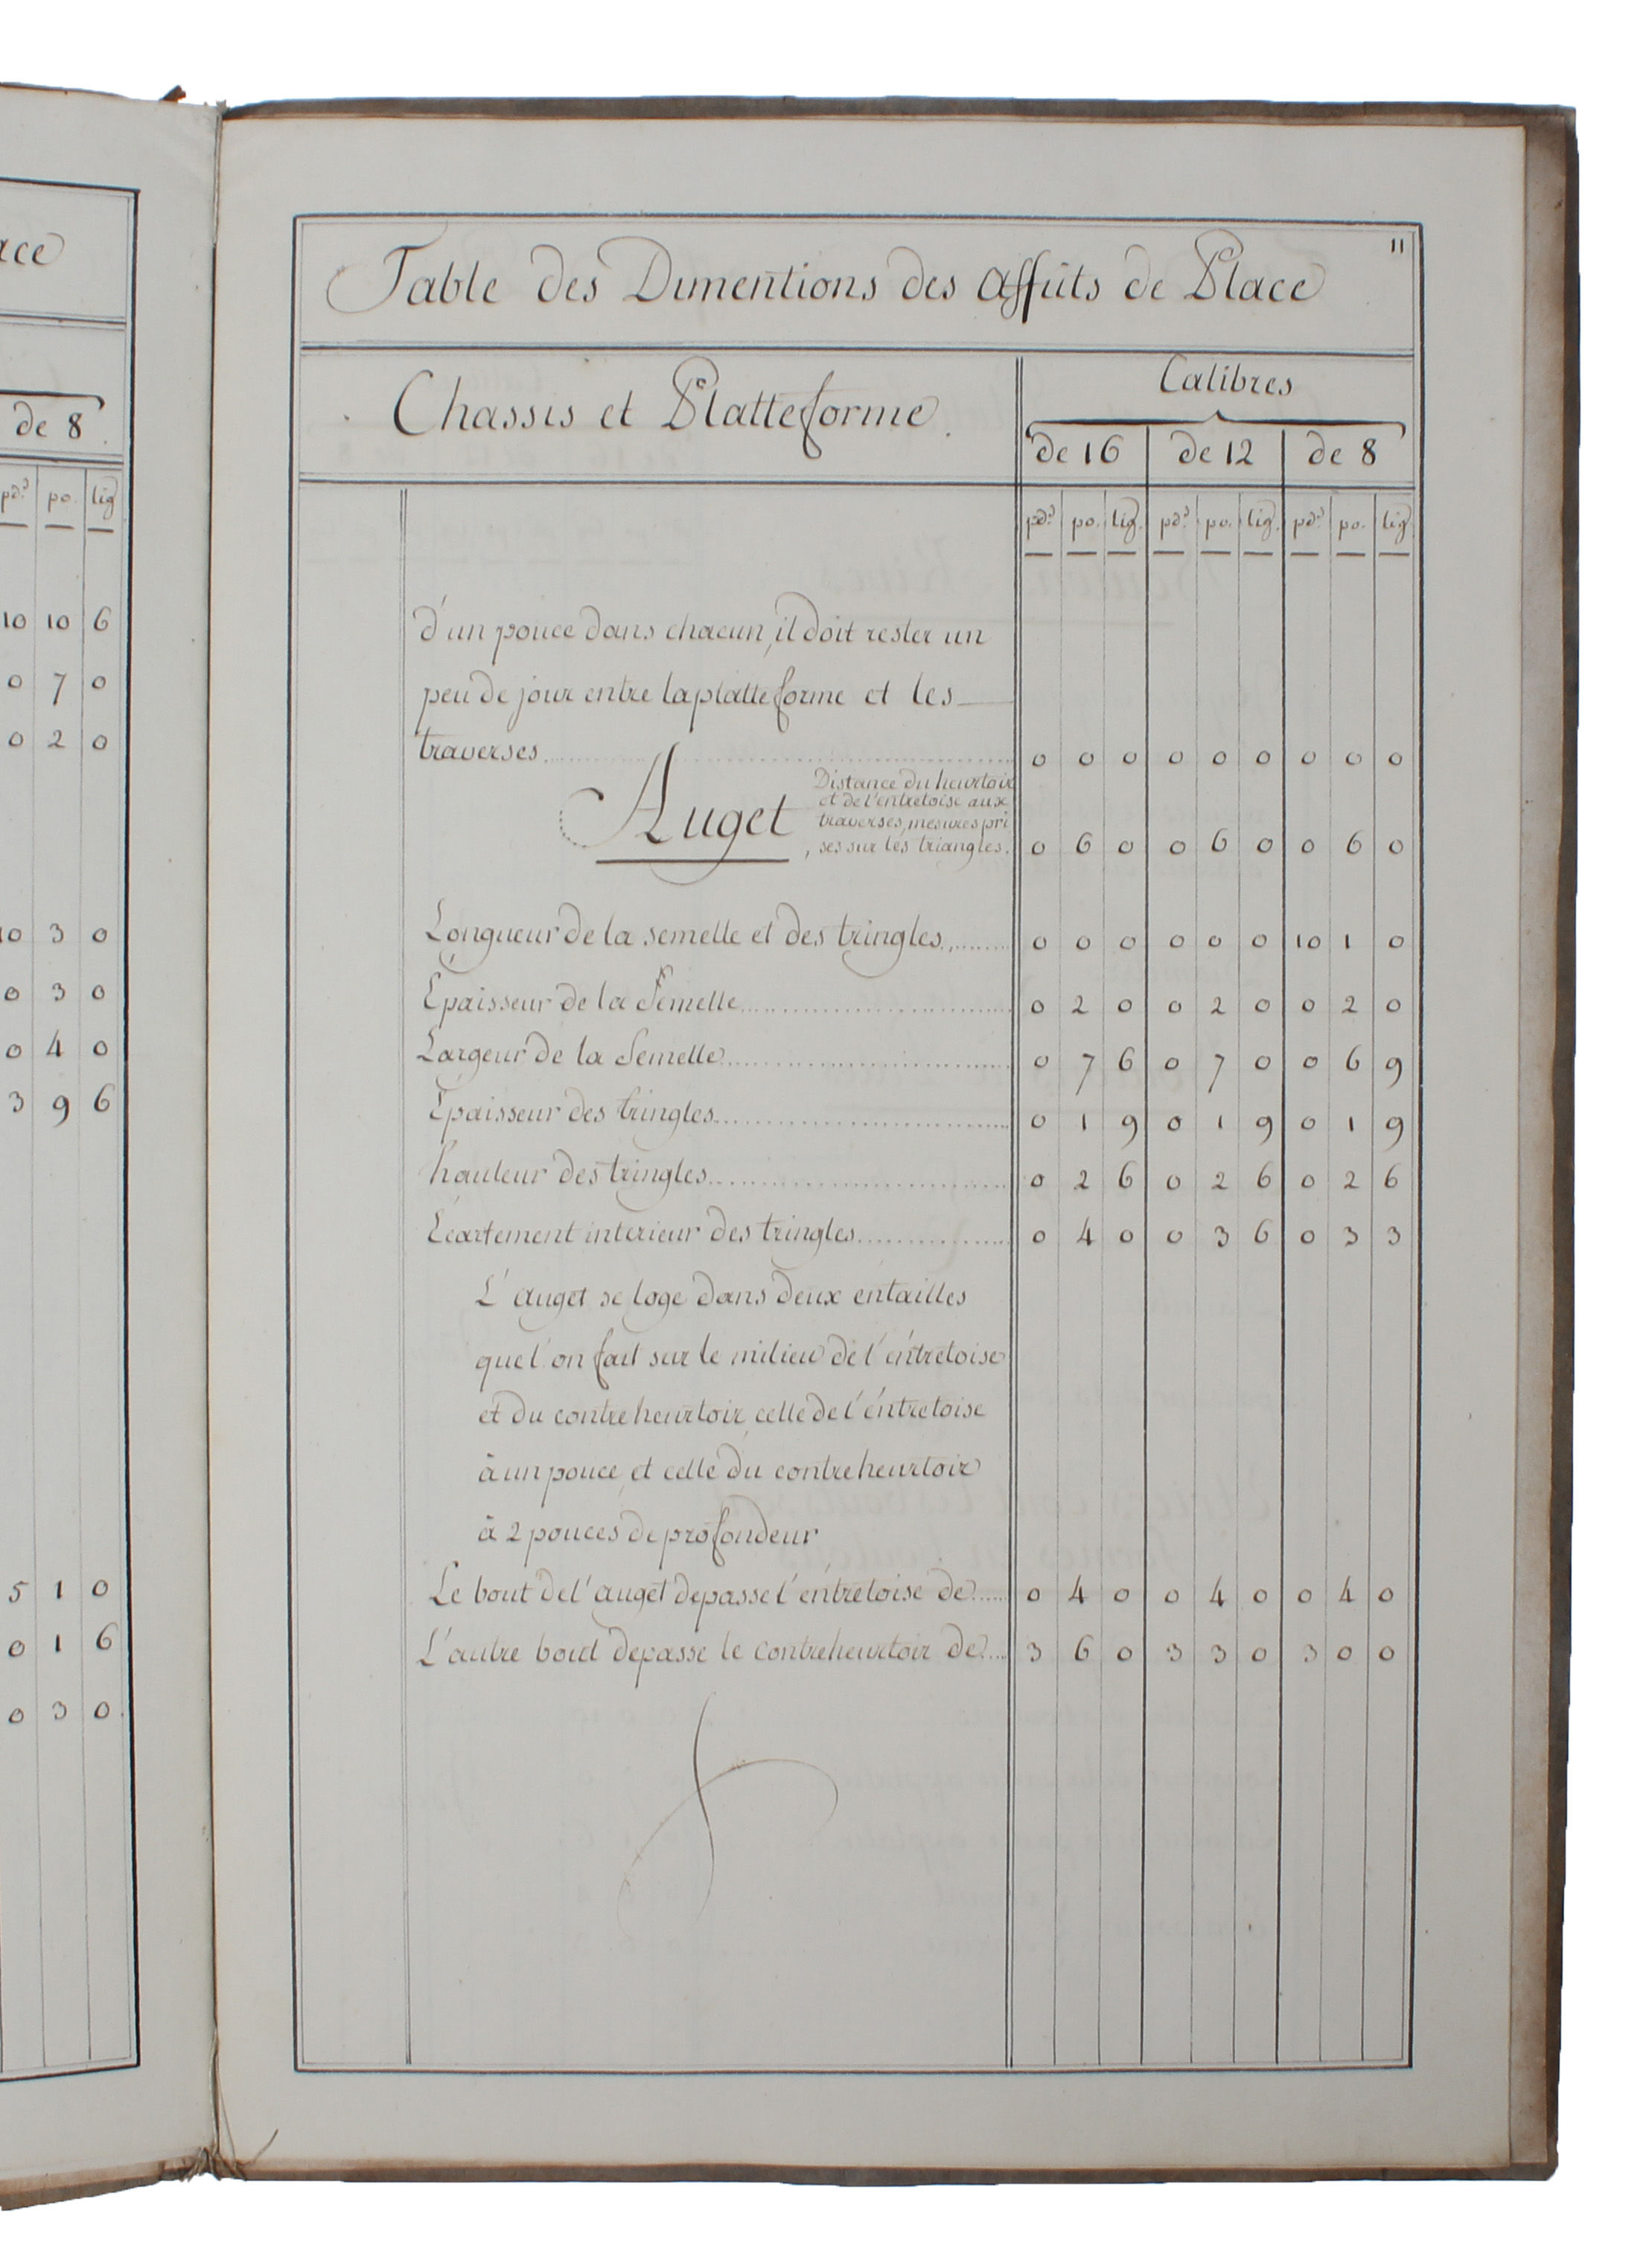 ace
de 8
pds po. lig
10 10 6
0 7 0
0 2 0
10 3 0
0 3 0
0 4 0
3 9 6
5 1 0
0 1 6
0 3 0
11
Table des Dimentions des affuts de Place
Chassis et Platteforme.
Calibres
de 16 de 12 de 8
pds po. lig. pds po. lig. pds po. lig.
d'un pouce dans chacun, il doit rester un
peu de jour entre la platteforme et les
traverses 0 0 0 0 0 0 0 0 0
Auget
Distance du heurtoir
et de l'entretoise aux
traverses, mesures pri
ses sur les triangles. 0 6 0 0 6 0 0 6 0
Longueur de la semelle et des tringles 0 0 0 0 0 0 10 1 0
Epaisseur de la Semelle 0 2 0 0 2 0 0 2 0
Largeur de la Semelle 0 7 6 0 7 0 0 6 9
Epaisseur des tringles 0 1 9 0 1 9 0 1 9
hauteur des tringles 0 2 6 0 2 6 0 2 6
Ecartement interieur des tringles 0 4 0 0 3 6 0 3 3
L'auget se loge dans deux entailles
que l'on fait sur le milieu de l'entretoise
et du contreheurtoir, celle de l'entretoise
à un pouce, et celle du contreheurtoir
à 2 pouces de profondeur
Le bout de l'auget depasse l'entretoise de 0 4 0 0 4 0 0 4 0
L'autre bout depasse le contreheurtoir de 3 6 0 3 3 0 3 0 0